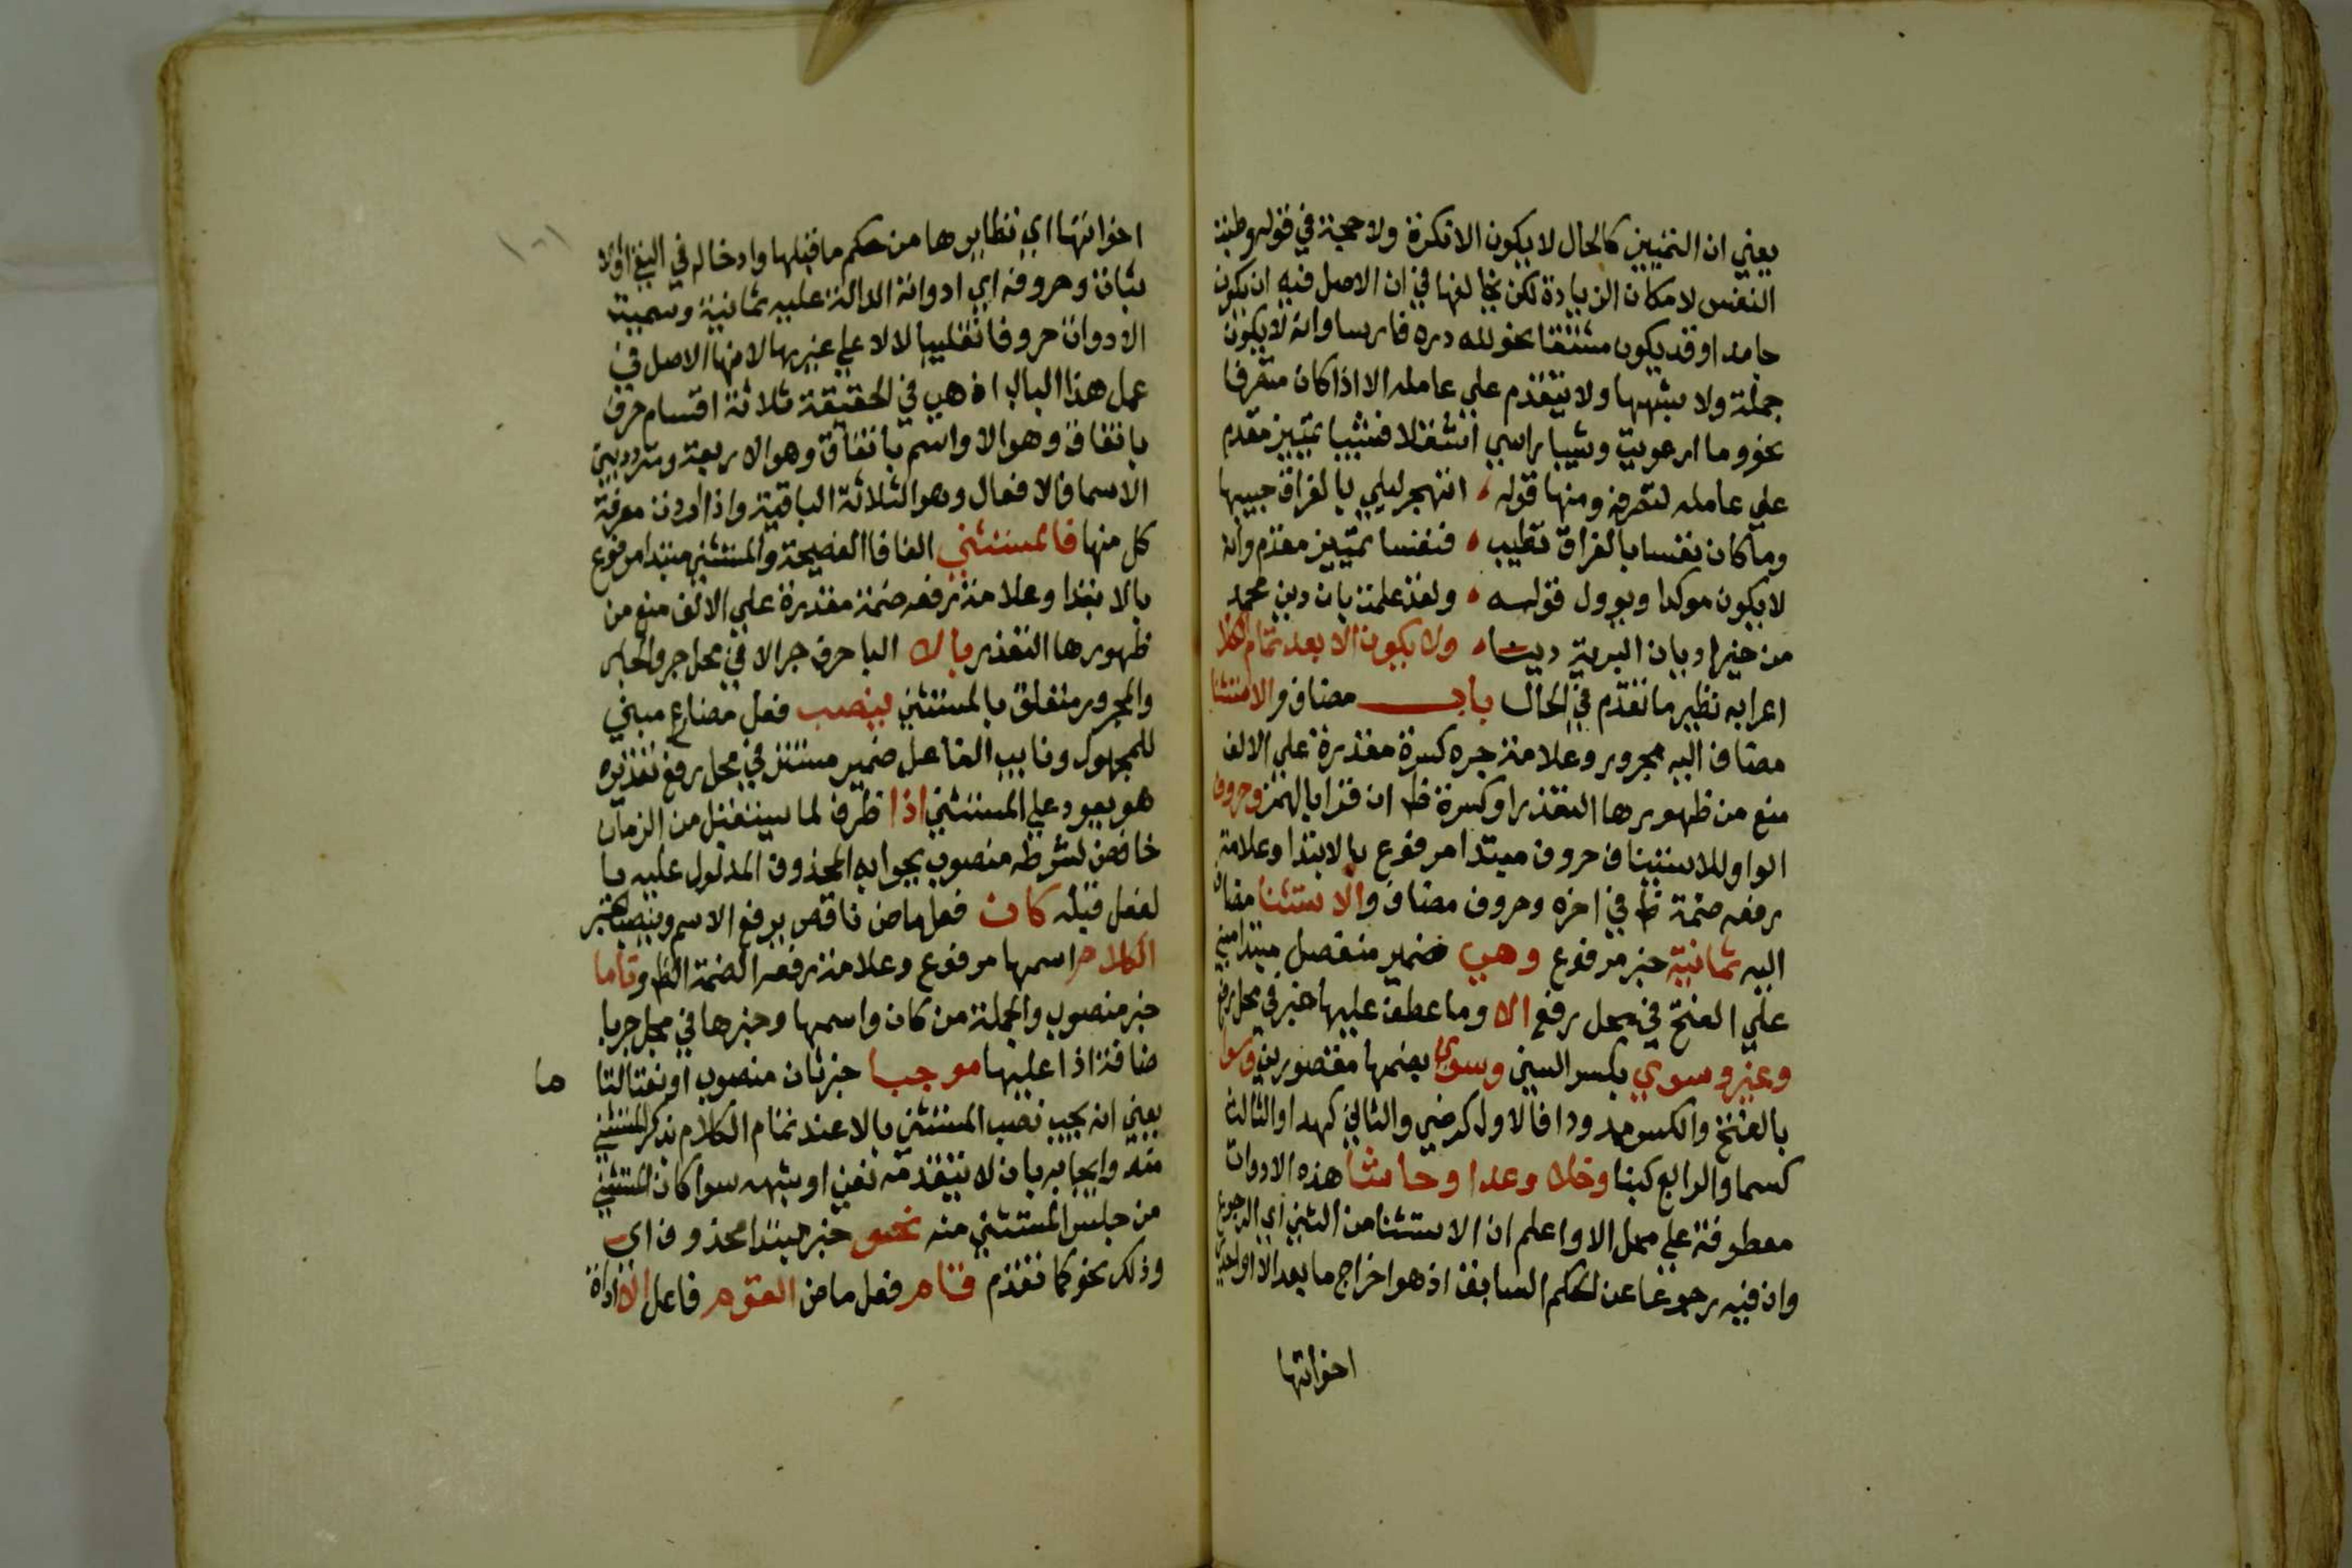 يعني ان التمييز كالحال لا يكون الا نكرة ولا حجة في قوله وطبت
النفس لامكان الزيادة لكن يخالفها في ان الاصل فيه ان يكون
جامدا وقد يكون مشتقا نحو لله دره فارسا وانه لا يكون
جملة ولا شبهها ولا يتقدم علي عامله الا اذا كان متصرفا
نحو وما ارعويت وشيبا راسي اشتعلا فشيبا تمييز مقدم
علي عامله لتصرفه ومنها قوله اتهجر ليلي بالفراق حبيبها
وما كان نفسا بالفراق تطيب فنفسا تمييز مقدم وانه
لا يكون موكدا ويوول قوله ولقد علمت بان دين محمد
من خير اديان البرية دينا ولا يكون الا بعد تمام الكلا
اعرابه نظير ما تقدم في الحال باب مضاف والاستثنا
مضاف اليه مجرور وعلامة جره كسرة مقدرة علي الالف
منع من ظهورها التعذر او كسرة ظ ان قرا بالهمز وحروف
الواو للاستيناف حروف مبتدا مرفوع بالابتدا وعلامة
رفعه ضمة ظ في اخره وحروف مضاف والاستثنا مضاف
اليه ثمانية خبر مرفوع وهي ضمير منفصل مبتدا مبني
علي الفتح في محل رفع الا وما عطف عليها خبر في محل رفع
وغير وسوي بكسر السين وسوي بضمها مقصورين وسوا
بالفتح والكسر ممدودا فالاول كرضي والثاني كهدا والثالث
كسما والرابع كبنا وخلا وعدا وحاشا هذه الادوات
معطوفة علي محل الا واعلم ان الاستثنا من الثني اي الرجوع
وان فيه رجوعا عن الحكم السابق اذ هو اخراج ما بعد الا او احدي
اخواتها
اخواتها اي نظايرها من حكم ما قبلها وادخاله في النفي اولا
ثبات وحروفه اي ادواته الدالة عليه ثمانية وسميت
الادوات حروفا تغليبا لالا علي غيرها لانها الاصل في
عمل هذا الباب اذ هي في الحقيقة ثلاثة اقسام حرف
باتفاق وهو الا واسم باتفاق وهو الاربعة ومتردد بين
الاسما والافعال وهو الثلاثة الباقية واذا اردت معرفة
كل منها فالمستثني الفا فا الفصيحة والمستثني مبتدا مرفوع
بالابتدا وعلامة رفعه ضمة مقدرة علي الالف منع من
ظهورها التعذر بالا البا حرف جر الا في محل جر والجار
والمجرور متعلق بالمستثني ينصب فعل مضارع مبني
للمجهول ونايب الفاعل ضمير مستتر في محل رفع تقديره
هو يعود علي المستثني اذا ظرف لما يستقبل من الزمان
خافض لشرطه منصوب بجوابه المحذوف المدلول عليه با
لفعل قبله كان فعل ماض ناقص يرفع الاسم وينصب الخبر
الكلام اسمها مرفوع وعلامة رفعه الضمة الظ وتاما
خبر منصوب والجملة من كان واسمها وخبرها في محل جر با
ضافة اذا عليها موجبا خبر ثان منصوب او نعتا لتا
ما
يعني انه يجب نصب المستثني بالا عند تمام الكلام بذكر المستثني
منه وايجابه بان لا يتقدمه نفي او شبهه سوا كان المستثني
من جلس المستثني منه نحو خبر مبتدا محذوف اي
وذلك نحو كما تقدم قام فعل ماض القوم فاعل الا اداة